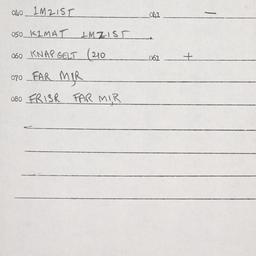 040 IMZIST 041 —
050 KIMAT IMZIST.
060 KNAPGELT (210 061 +
070 FAR MIR
080 FRISR FAR MIR